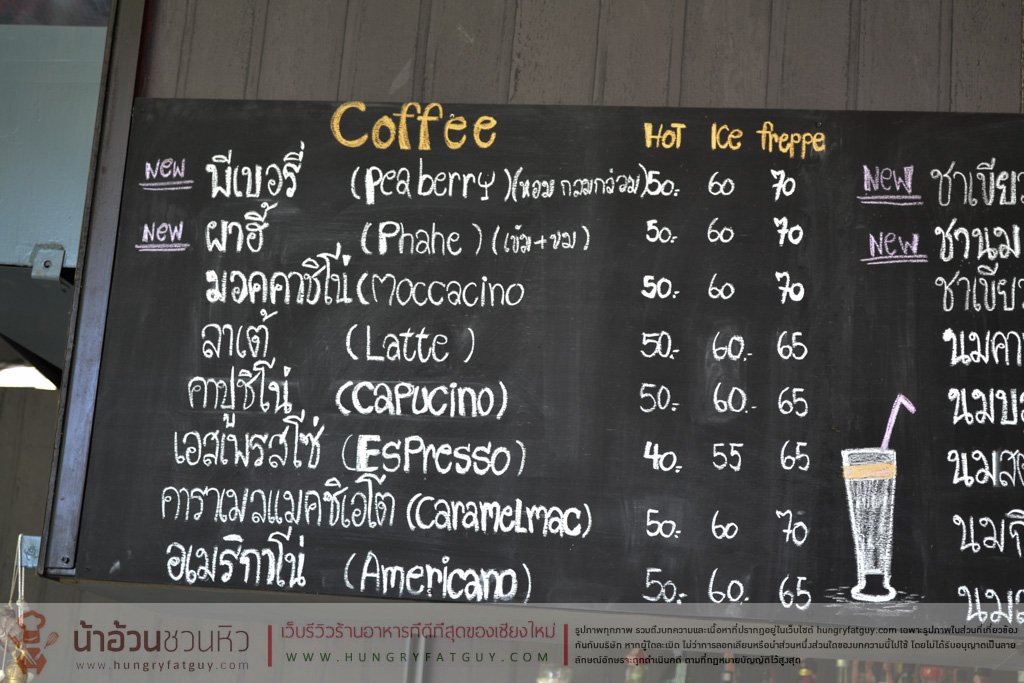 Coffee HOT Ice freppe
New พีเบอรี่ (Peaberry) (หอม กลมกล่อม) 50.- 60 70
New ผาฮี้ (Phahe) (เข้ม+ขม) 50.- 60 70
มอคคาชิโน่ (Moccacino 50.- 60 70
ลาเต้ (Latte) 50.- 60.- 65
คาปูชิโน่ (Capucino) 50.- 60.- 65
เอสเพรสโซ่ (Espresso) 40.- 55 65
คาราเมลแมคชิเอโต (Caramelmac) 50.- 60 70
อเมริกาโน่ (Americano) 50.- 60.- 65
New ชาเขียว
New ชานม
ชาเขียว
นมคา
นมบ
นมส
นม
นม
น้าอ้วนชวนหิว
www.hungryfatguy.com
เว็บรีวิวร้านอาหารที่ดีที่สุดของเชียงใหม่
WWW.HUNGRYFATGUY.COM
รูปภาพทุกภาพ รวมถึงบทความและเนื้อหาที่ปรากฏอยู่ในเว็บไซต์ hungryfatguy.com เฉพาะรูปภาพในส่วนที่เกี่ยวข้อง
กันกับบริษัท หากผู้ใดละเมิด ไม่ว่าการลอกเลียนหรือนำส่วนหนึ่งส่วนใดของบทความนี้ไปใช้ โดยไม่ได้รับอนุญาตเป็นลาย
ลักษณ์อักษรจะถูกดำเนินคดี ตามที่กฎหมายบัญญัติไว้สูงสุด